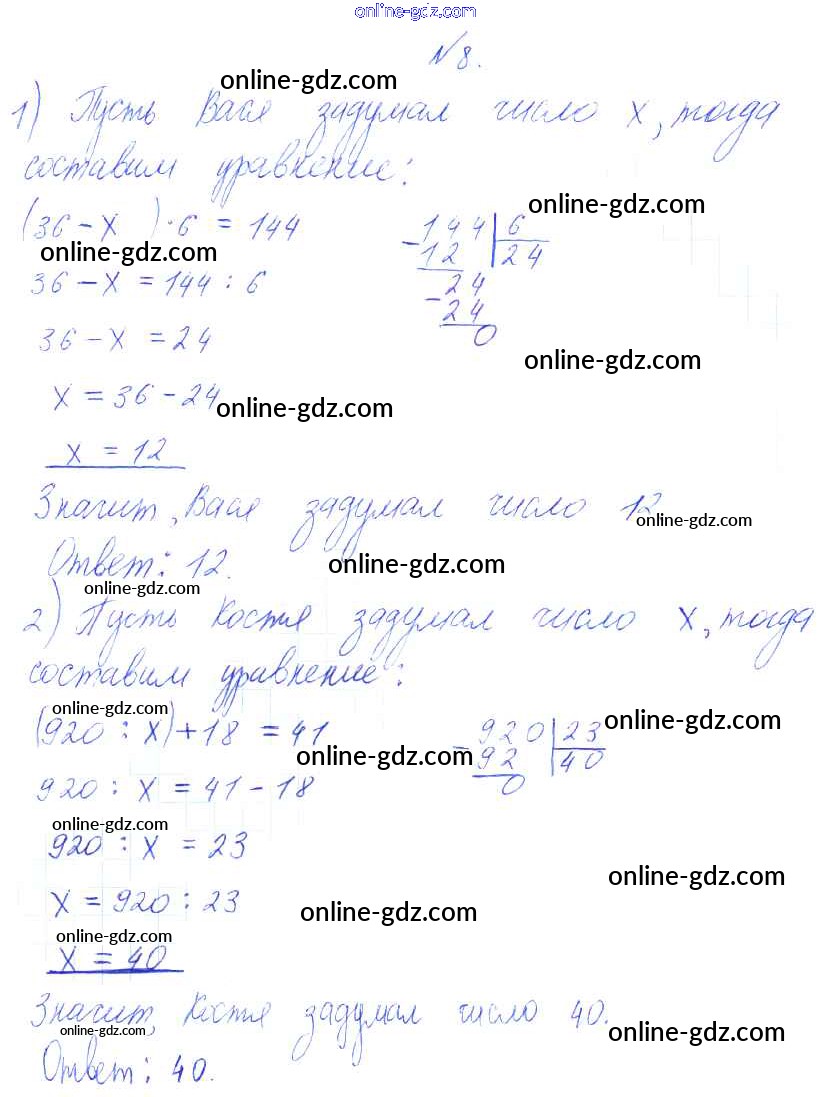 online-gdz.com
№8.
online-gdz.com
1) Пусть Вася задумал число x, тогда
составим уравнение:
online-gdz.com
(36 - x ) · 6 = 144
144 | 6
- 12 | 24
online-gdz.com
36 - x = 144 : 6
24
- 24
0
36 - x = 24
online-gdz.com
x = 36 - 24
online-gdz.com
x = 12
Значит, Вася задумал число 12
online-gdz.com
Ответ: 12.
online-gdz.com
online-gdz.com
2) Пусть Костя задумал число x, тогда
составим уравнение:
online-gdz.com
online-gdz.com
(920 : x) + 18 = 41
920 | 23
- 92 | 40
0
online-gdz.com
920 : x = 41 - 18
online-gdz.com
920 : x = 23
online-gdz.com
x = 920 : 23
online-gdz.com
online-gdz.com
x = 40
Значит, Костя задумал число 40.
online-gdz.com
online-gdz.com
Ответ: 40.